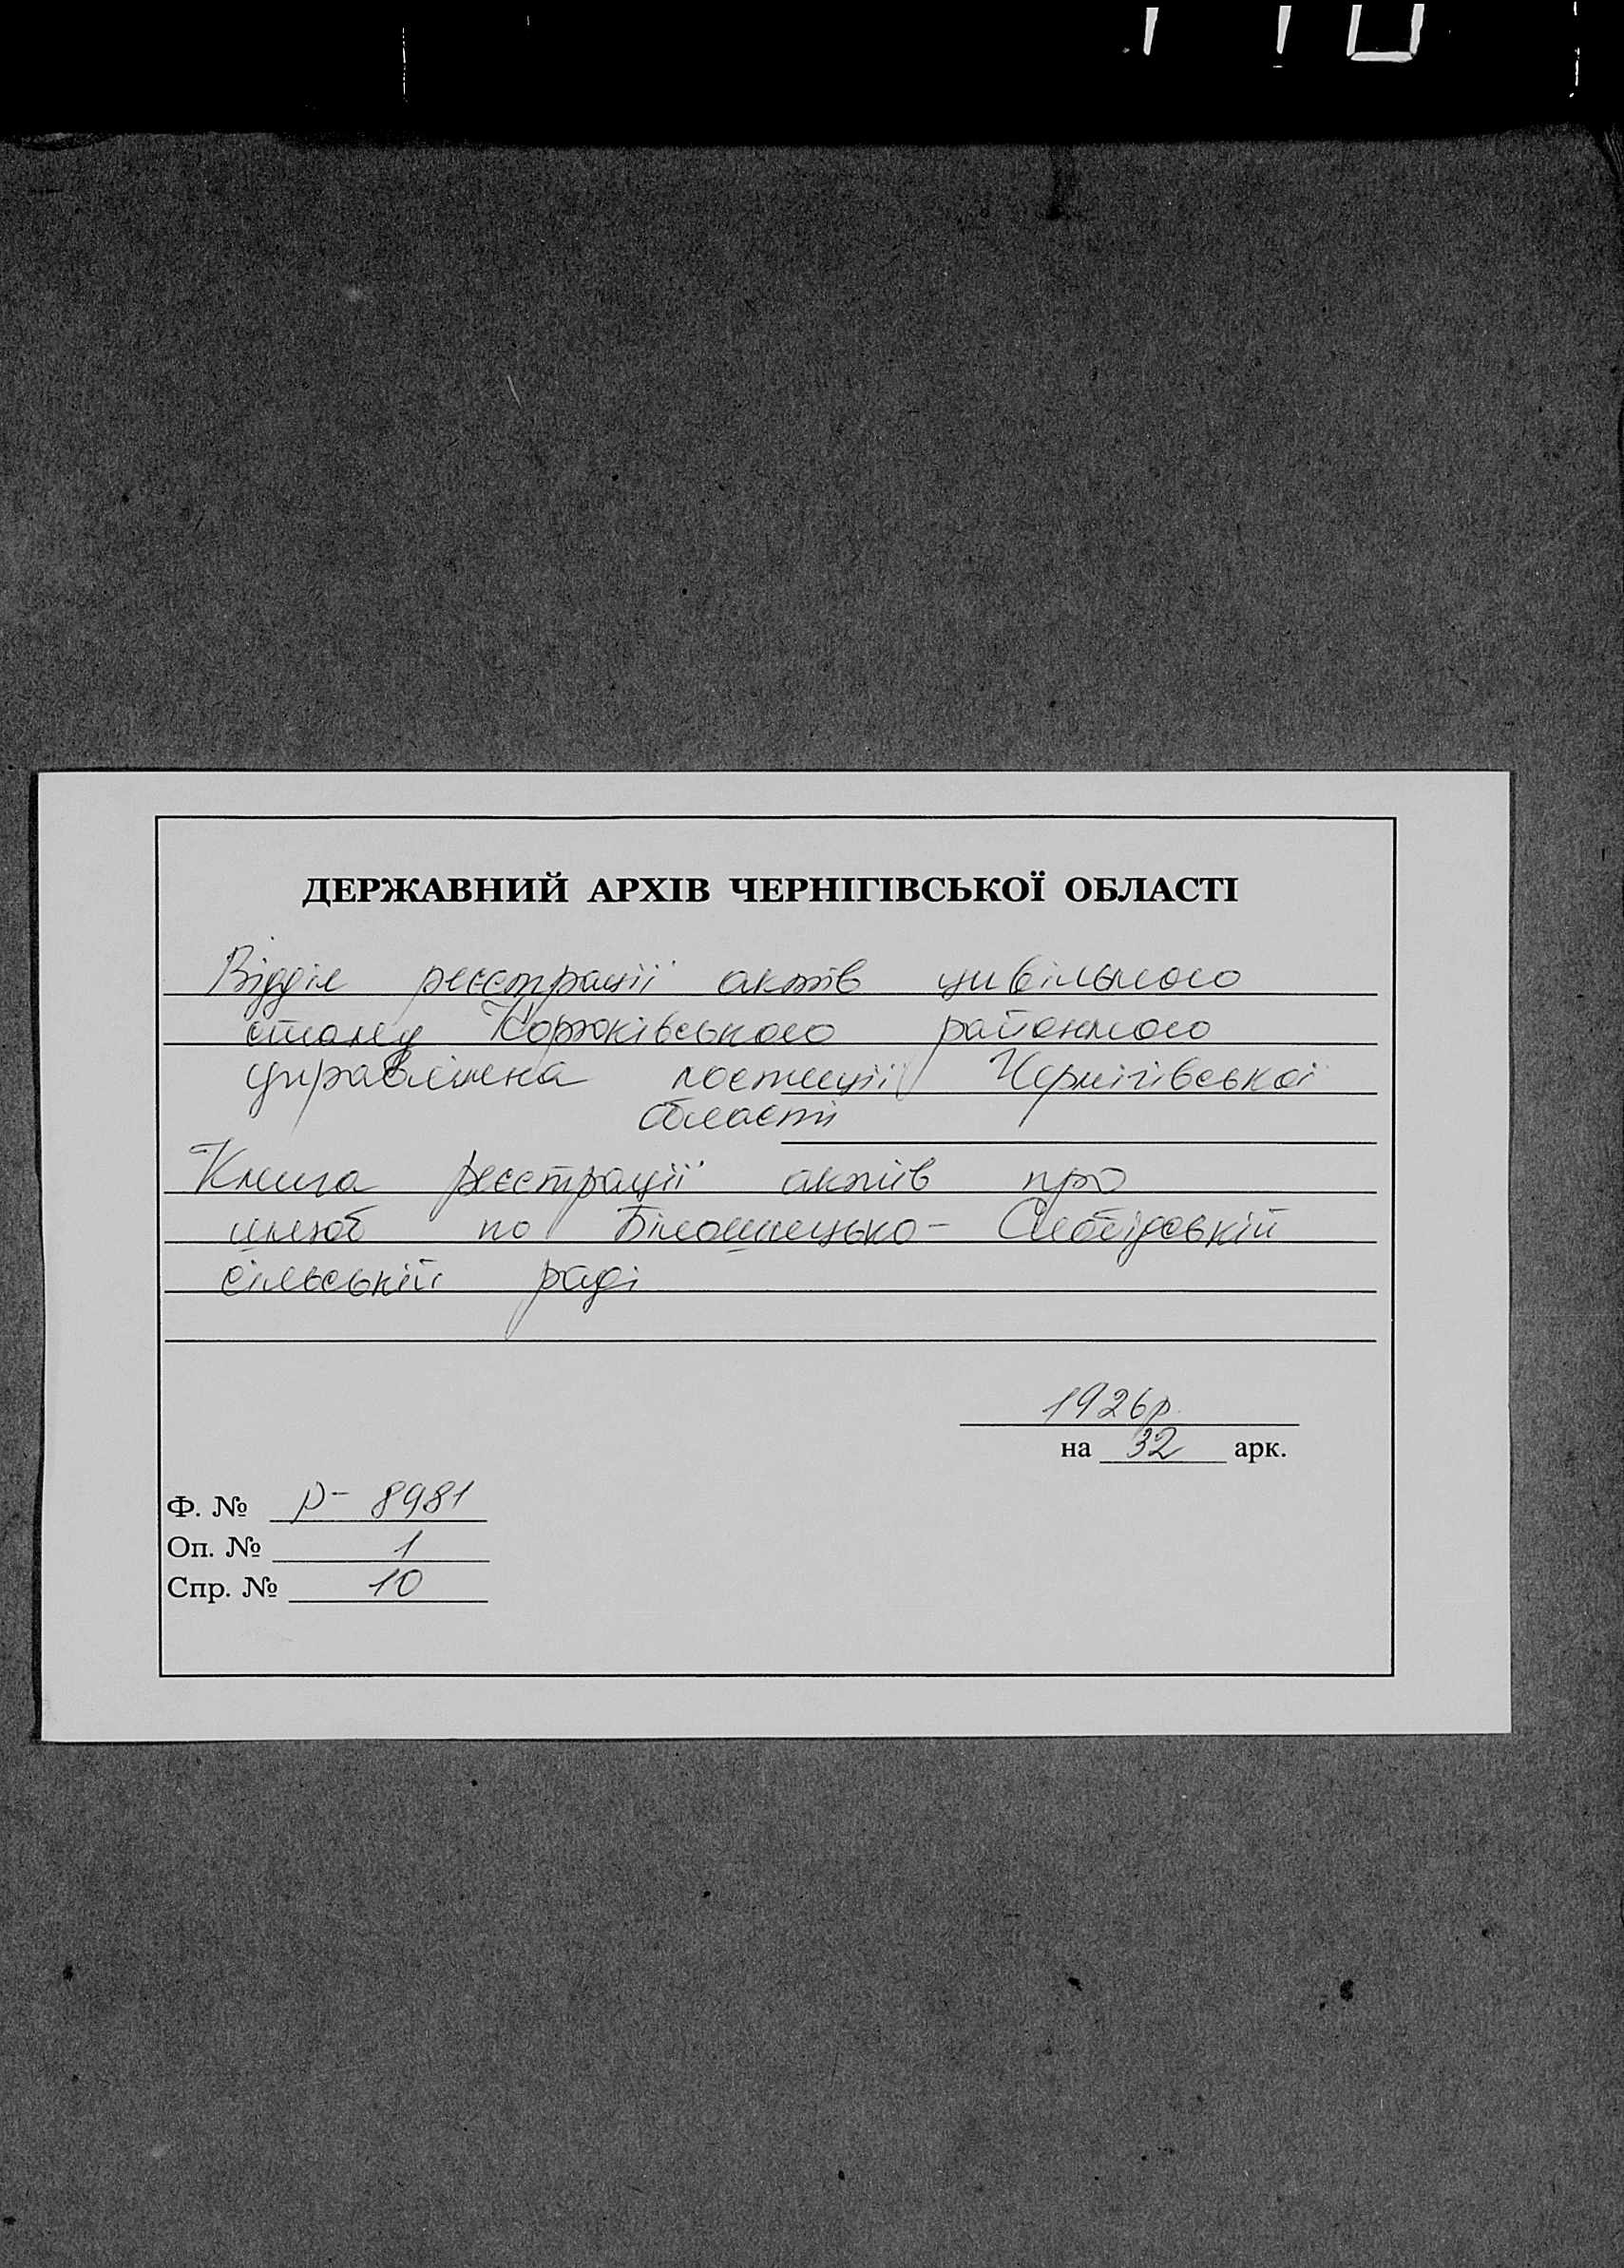 ДЕРЖАВНИЙ АРХІВ ЧЕРНІГІВСЬКОЇ ОБЛАСТІ
Відділ реєстрації актів цивільного
стану Корюківського районного
управління юстиції Чернігівської
області
Книга реєстрації актів про
шлюб по Білошицько-Слобідській
сільській раді
1926р.
на 32 арк.
Ф. № Р-8981
Оп. № 1
Спр. № 10